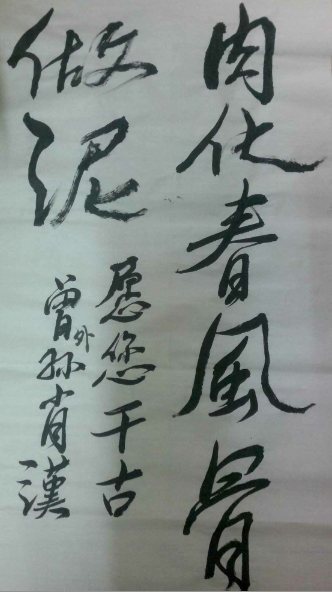 肉化春風骨
做泥
愿您千古
曾外孙肖漢